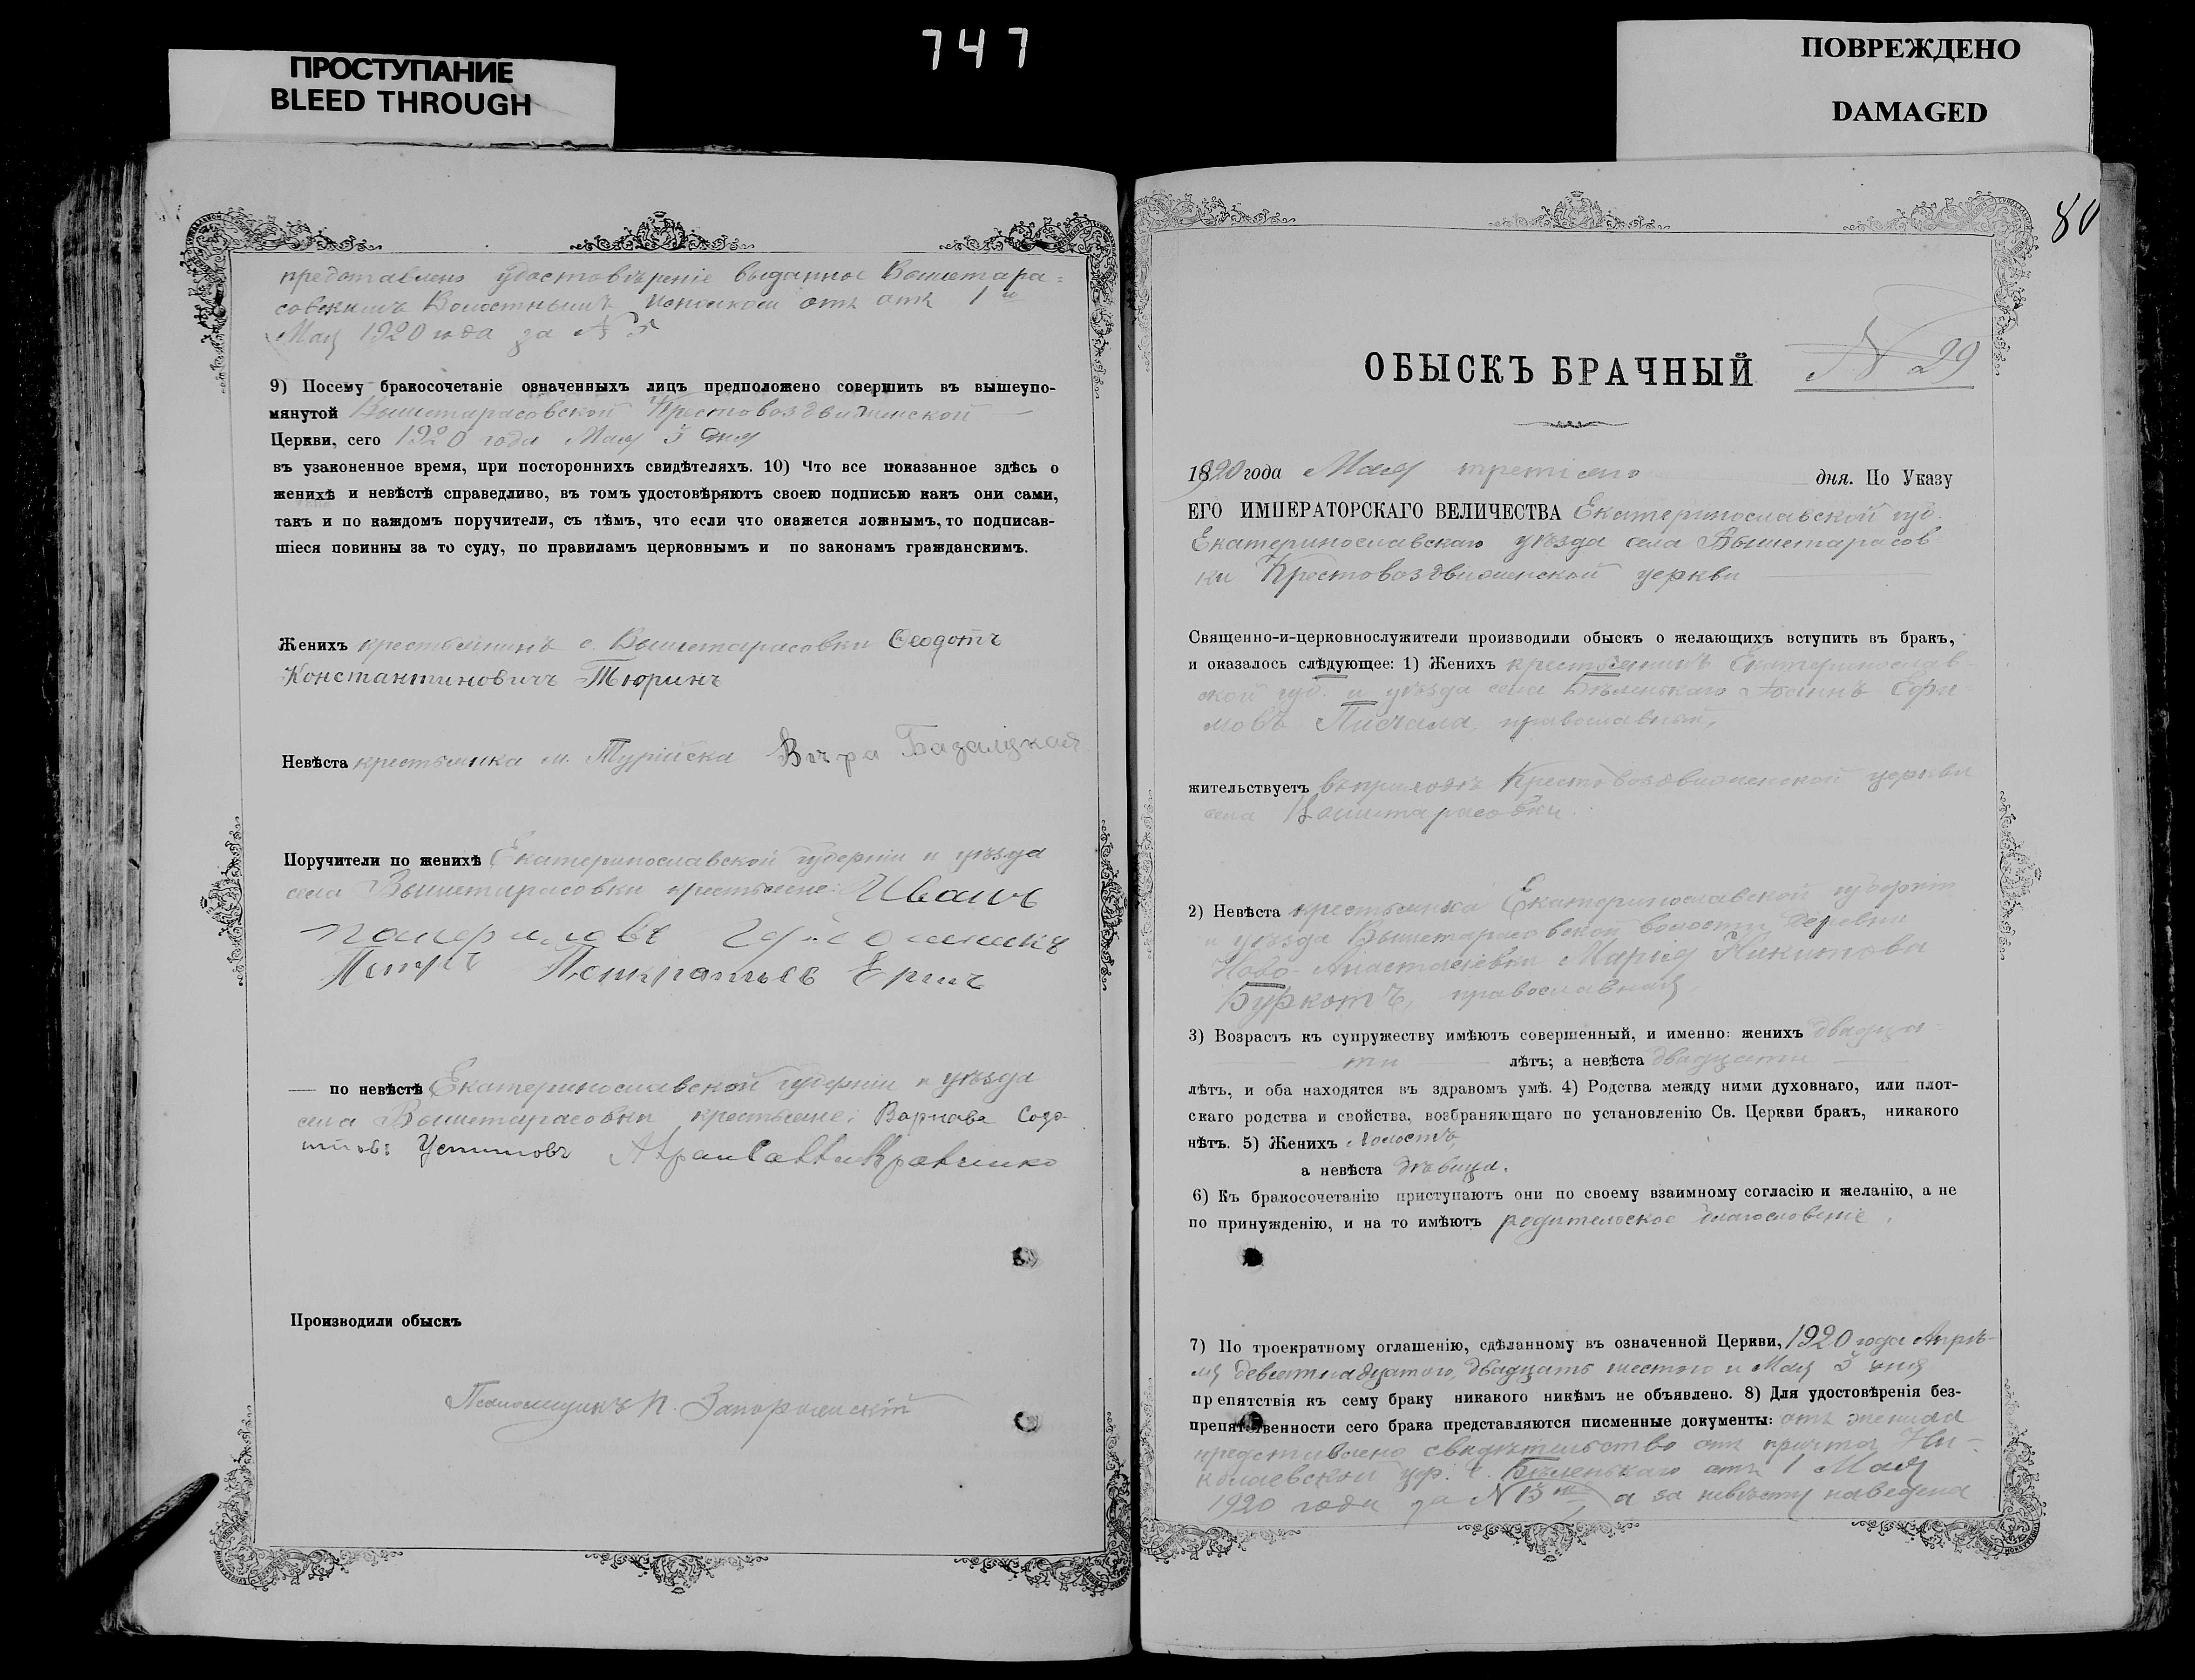 747
ПРОСТУПАНИЕ
BLEED THROUGH
ПОВРЕЖДЕНО
DAMAGED
представлено удостовѣреніе выданное Вышетара=
совскимъ Волостнымъ отъ 1
Мая 1920 года за №
9) Посему бракосочетаніе означенныхъ лицъ предположено совершить въ вышеупо-
мянутой Вышетарасовской Крестовоздвиженской
Церкви, сего 1920 года Мая 3 дня
въ узаконенное время, при постороннихъ свидѣтеляхъ. 10) Что все показанное здѣсь о
женихѣ и невѣстѣ справедливо, въ томъ удостовѣряютъ своею подписью какъ они сами,
такъ и по каждомъ поручители, съ тѣмъ, что если что окажется ложнымъ, то подписав-
шіеся повинны за то суду, по правиламъ церковнымъ и по законамъ гражданскимъ.
Женихъ крестьянинъ с. Вышетарасовки Ѳеодотъ
Константиновичъ Тюринъ
Невѣста крестьянка м. Турійска Вѣра Базалуцкая
Поручители по женихѣ Екатеринославской губерніи и уѣзда
села Вышетарасовки крестьяне: Иванъ
Петръ
по невѣстѣ Екатеринославской губерніи и уѣзда
села Вышетарасовки крестьяне: Варнава Созо-
Устимовъ Кравченко
Производили обыскъ
Псаломщикъ П. Запорожскій
80
ОБЫСКЪ БРАЧНЫЙ N 29
1920 года Мая третьяго дня. По Указу
ЕГО ИМПЕРАТОРСКАГО ВЕЛИЧЕСТВА Екатеринославской губ.
Екатеринославскаго уѣзда села Вышетарасов
ки Крестовоздвиженской церкви
Священно-и-церковнослужители производили обыскъ о желающихъ вступить въ бракъ,
и оказалось слѣдующее: 1) Женихъ крестьянинъ Екатеринослав-
ской губ. и уѣзда села Бѣленькаго Іоаннъ Ефи-
мовъ Пищала, православный,
жительствуетъ въ приходѣ Крестовоздвиженской церкви
села Вышетарасовки.
2) Невѣста крестьянка Екатеринославской губерніи
и уѣзда Вышетарасовской волости деревни
Ново-Анастасіевки Марія Никитова
Буркотъ, православная,
3) Возрастъ къ супружеству имѣютъ совершенный, и именно: женихъ двадца
ти лѣтъ; а невѣста двадцати
лѣтъ, и оба находятся въ здравомъ умѣ. 4) Родства между ними духовнаго, или плот-
скаго родства и свойства, возбраняющаго по установленію Св. Церкви бракъ, никакого
нѣтъ. 5) Женихъ холостъ,
а невѣста дѣвица.
6) Къ бракосочетанію приступаютъ они по своему взаимному согласію и желанію, а не
по принужденію, и на то имѣютъ родительское благословеніе.
7) По троекратному оглашенію, сдѣланному въ означенной Церкви, 1920 года Апрѣ-
ля девятнадцатого, двадцать шестого и Мая 3 дня
препятствія къ сему браку никакого никѣмъ не объявлено. 8) Для удостовѣренія без-
препятственности сего брака представляются писменные документы: отъ жениха
представлено свидѣтельство отъ причта Ни-
колаевской цер. с. Бѣленькаго отъ 1 Мая
1920 года за N а за невѣсту наведена